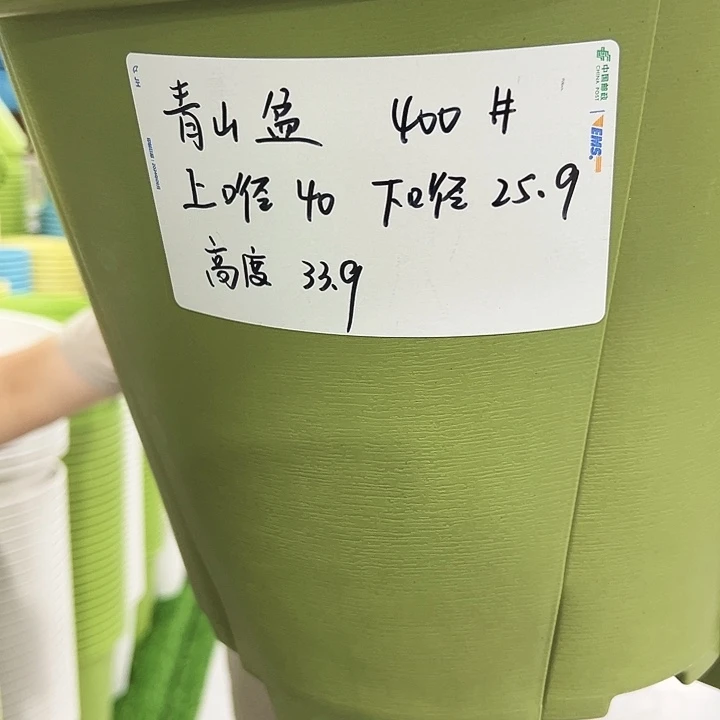 青山盆 400#
上口径 40 下口径 25.9
高度 33.9
中国邮政
CHINA POST
EMS